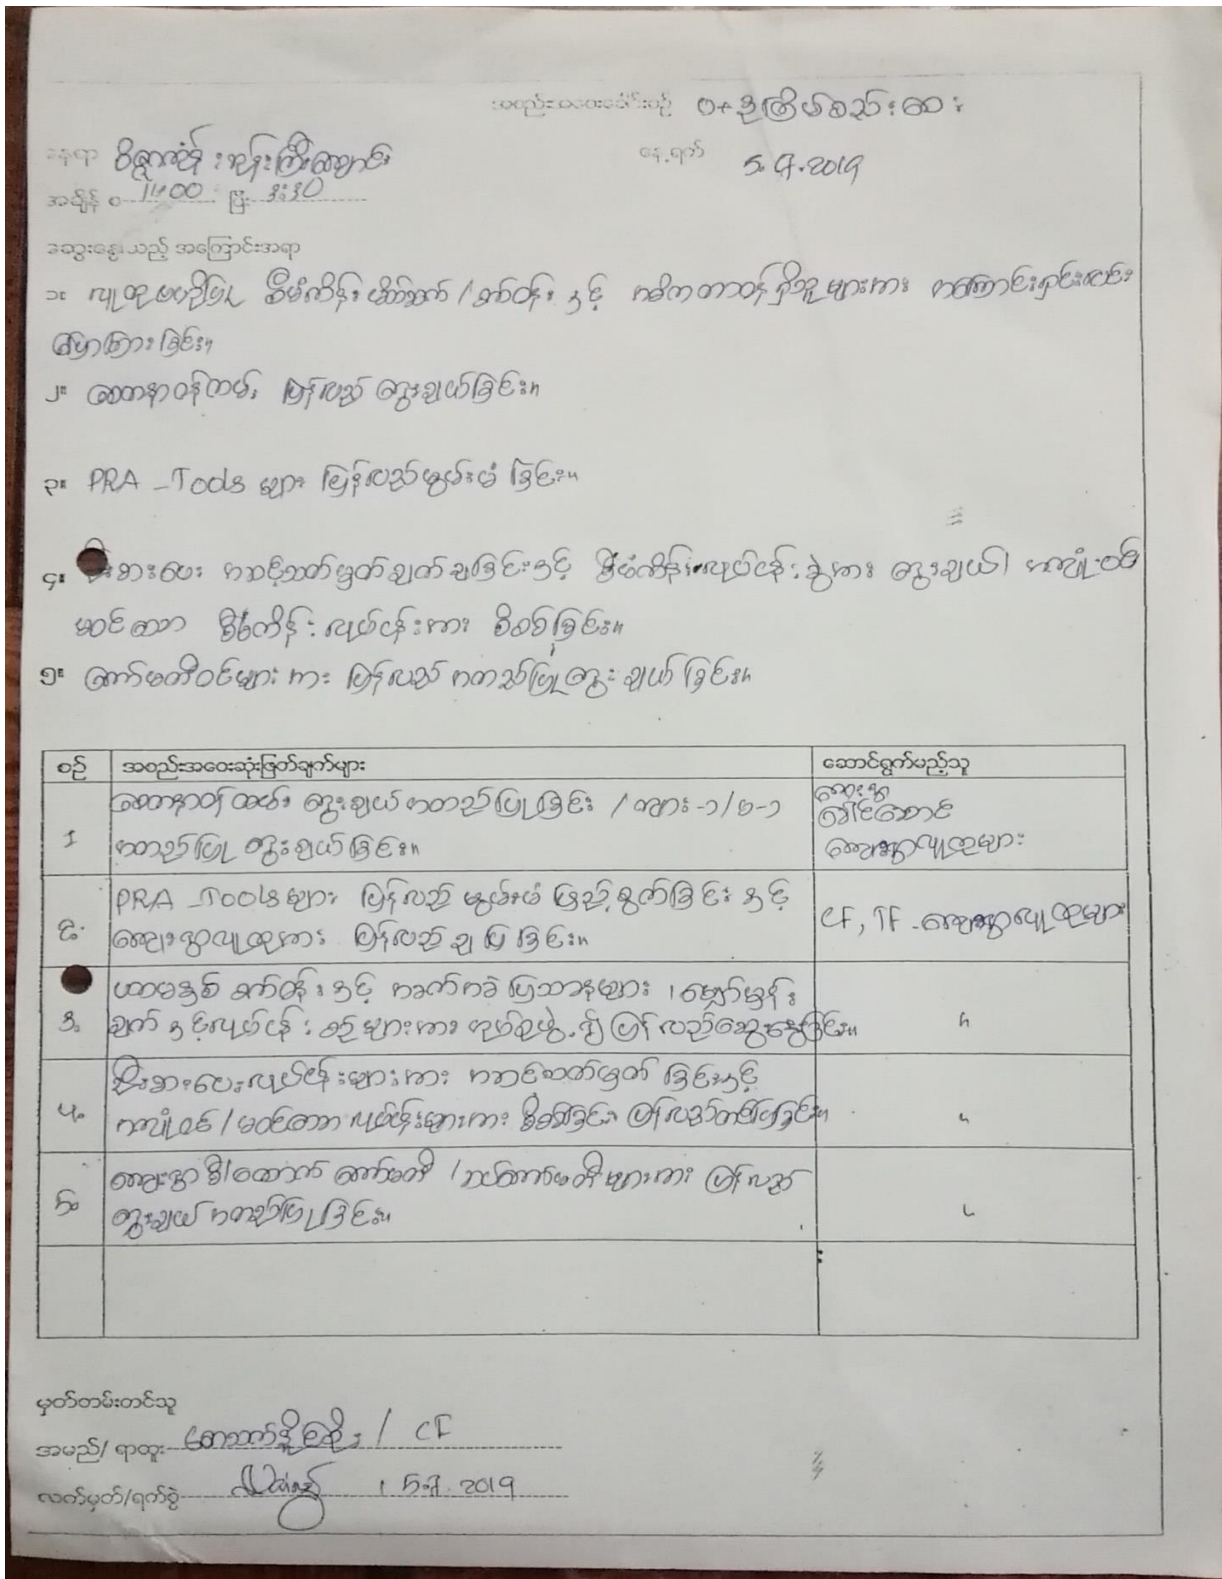 အစည်းအဝေးခေါင်းစဉ် ပ+ဒုကြိမ်စည်းဝေး
နေရာ ဘုန်းကြီးကျောင်း နေ့ရက် 5.9.2019
အချိန် စ 11:00 ပြီး 3:30
ဆွေးနွေးသည့် အကြောင်းအရာ
၁။ လူထုဗဟိုပြု စီမံကိန်း မိတ်ဆက် / နှင့် တာဝန်ရှိသူများအား အကြောင်းရှင်းလင်း
ပြောကြားခြင်း။
၂။ စေတနာ့ဝန်ထမ်း ပြန်လည် ရွေးချယ်ခြင်း။
၃။ PRA -Tools များ ပြန်လည်မွမ်းမံ ခြင်း။
၄။ ဦးစားပေး အဆင့်သတ်မှတ်ချက်ချခြင်းနှင့် စီမံကိန်းလုပ်ငန်းခွဲအား ရွေးချယ်၊ အကျုံးဝင်
မဝင်သော စီမံကိန်းလုပ်ငန်းအား စိစစ်ခြင်း။
၅။ ကော်မတီဝင်များအား ပြန်လည် အတည်ပြုရွေးချယ်ခြင်း။
စဉ် အစည်းအဝေးဆုံးဖြတ်ချက်များ ဆောင်ရွက်မည့်သူ
1 စေတနာ့ဝန်ထမ်း ရွေးချယ်အတည်ပြုခြင်း / ကျား-၁/မ-၁ ကျေးရွာ
အတည်ပြု ရွေးချယ်ခြင်း။ ခေါင်းဆောင်
ကျေးရွာလူထုများ
2. PRA -Tools များ ပြန်လည် မွမ်းမံ ဖြည့်စွက်ခြင်း နှင့် CF, TF - ကျေးရွာလူထုများ
ကျေးရွာလူထုအား ပြန်လည် ချပြခြင်း။
3. ယာမနှစ် စက်ဝန်းနှင့် အခက်အခဲ ပြဿနာများ ၊ မျှော်မှန်း
ချက် နှင့်လုပ်ငန်းစဉ်များအား အုပ်စုဖွဲ့၍ ပြန်လည်ဆွေးနွေးခြင်း။ "
4. ဦးစားပေးလုပ်ငန်းများအား အဆင့်သတ်မှတ်ခြင်းနှင့်
အကျုံးဝင်/မဝင်သော လုပ်ငန်းများအား စိစစ်ခြင်း ပြန်လည်တင်ပြခြင်း။ "
5. ကျေးရွာစီ/ထောက် ကော်မတီ /ဆပ်ကော်မတီများအား ပြန်လည်
ရွေးချယ် အတည်ပြုခြင်း။ "
မှတ်တမ်းတင်သူ
အမည်/ ရာထူး / CF
လက်မှတ်/ရက်စွဲ 5.9.2019